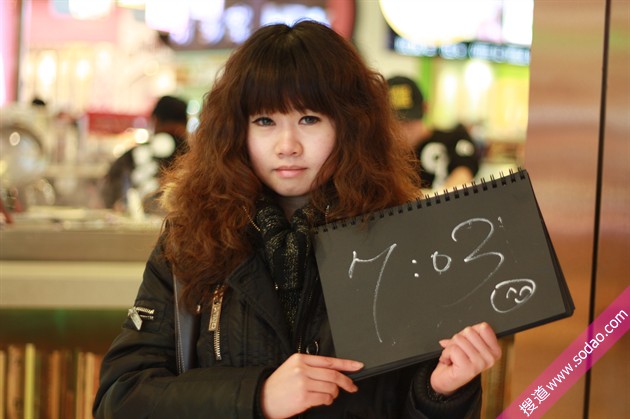 7:03
搜道 www.sodao.com